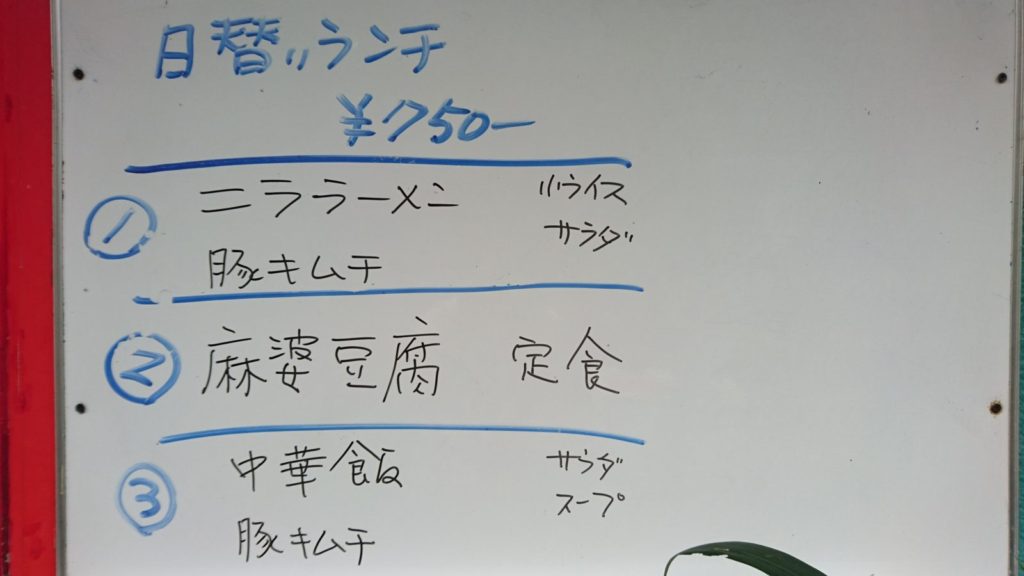 日替りランチ
¥750ー
① ニララーメン 小ライス
サラダ
豚キムチ
② 麻婆豆腐 定食
③ 中華飯 サラダ
スープ
豚キムチ